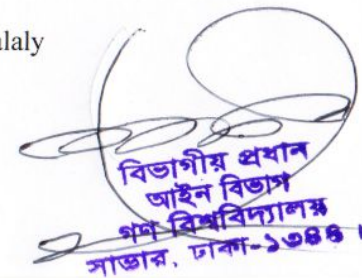 alaly
বিভাগীয় প্রধান
আইন বিভাগ
গণ বিশ্ববিদ্যালয়
সাভার, ঢাকা-১৩৪৪ ।